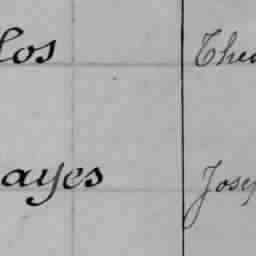 los Theo
ayes Josep